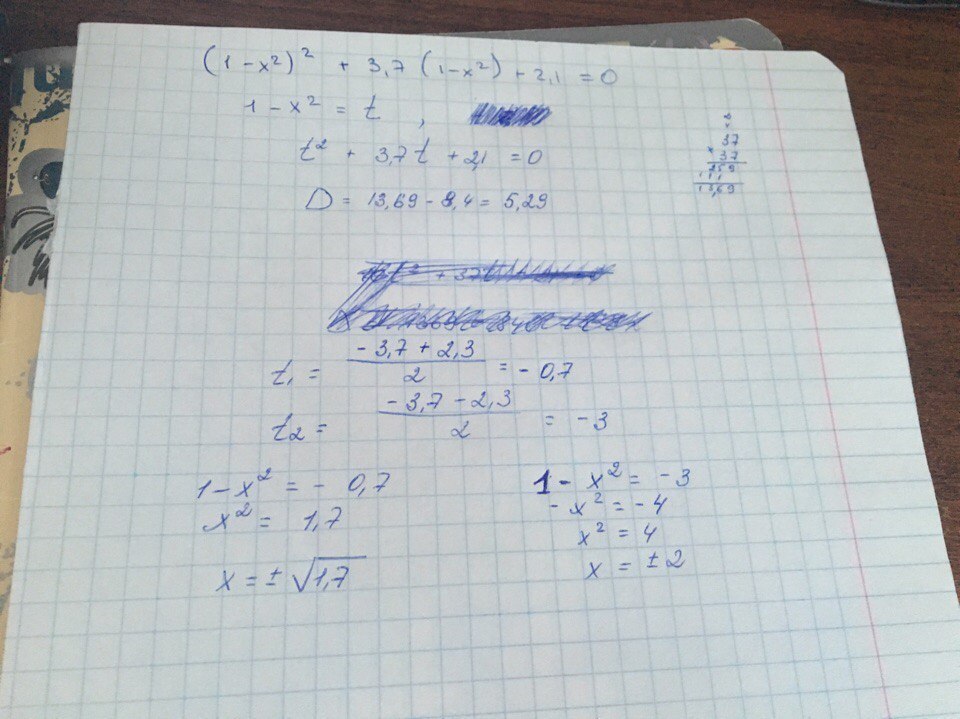 (1-x²)² + 3,7 (1-x²) + 2,1 = 0
1 - x² = t ,
t² + 3,7t + 2,1 = 0
D = 13,69 - 8,4 = 5,29
37
× 37
259
111
13,69
t₁ = (-3,7 + 2,3)/2 = - 0,7
t₂ = (-3,7 - 2,3)/2 = -3
1 - x² = - 0,7
x² = 1,7
x = ± √1,7
1 - x² = -3
- x² = - 4
x² = 4
x = ± 2